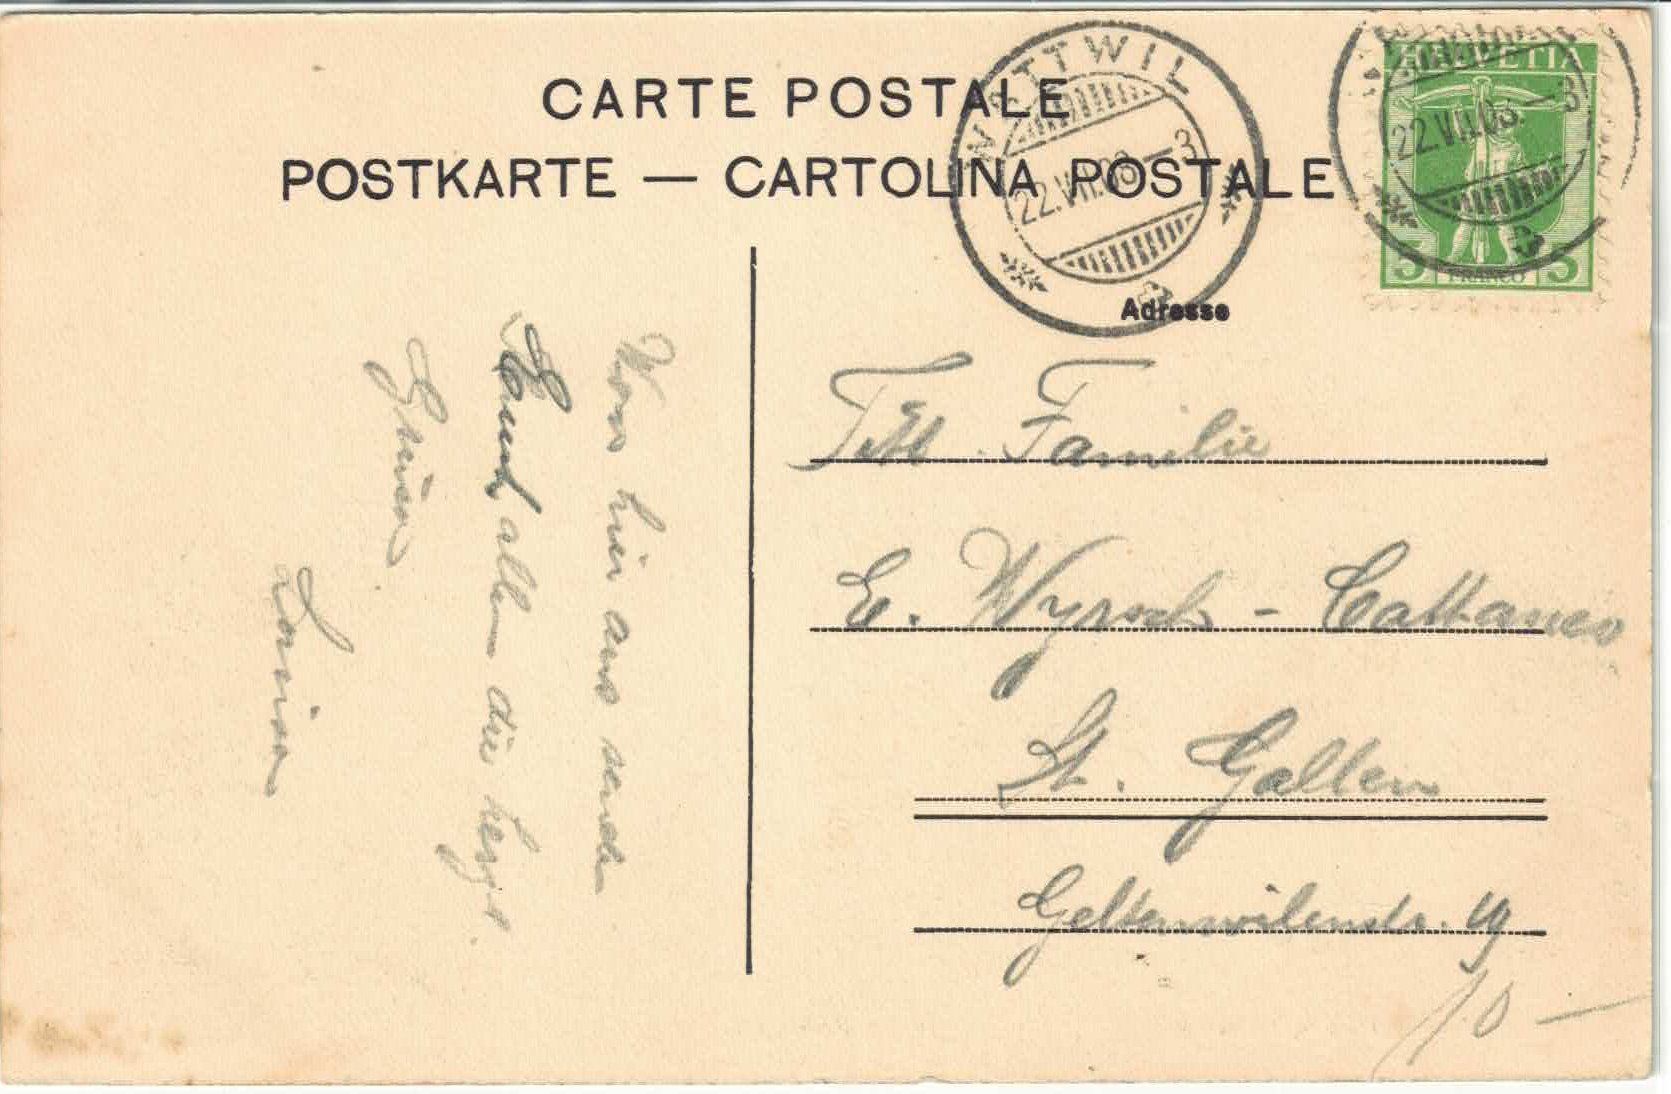 CARTE POSTALE
POSTKARTE — CARTOLINA POSTALE
WATTWIL
22.VII.08.—3
HELVETIA
22.VII.08.—3
5 FRANCO 5
Adresse
Titl. Familie
E. Wyrsch - Cattaneo
St. Gallen
Geltenwilenstr. 19
10 —
Von hier aus senden
Euch allen die herzl.
Grüsse
Louisa